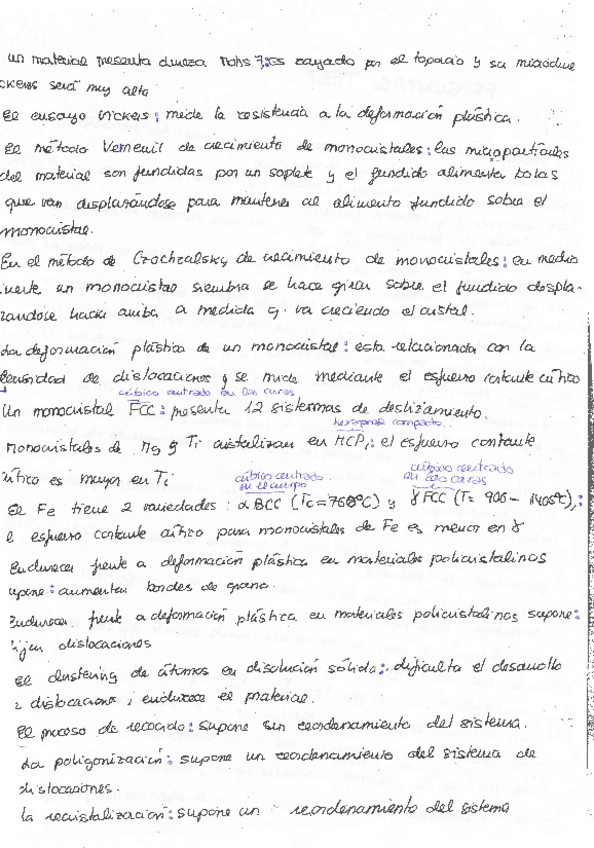 un material presenta dureza Mohs 7: es rayado por el topacio y su microdure
ckers será muy alta
El ensayo Vickers: mide la resistencia a la deformación plástica.
El método Verneuil de crecimiento de monocristales: las micropartículas
del material son fundidas por un soplete y el fundido alimenta bolas
que van desplazándose para mantener al alimento fundido sobre el
monocristal.
En el método de Czochralsky de crecimiento de monocristales: en medio
inerte un monocristal siembra se hace girar sobre el fundido despla-
zandose hacia arriba a medida q. va creciendo el cristal.
La deformación plástica de un monocristal: esta relacionada con la
densidad de dislocaciones y se mide mediante el esfuerzo cortante crítico
cúbico centrado en las caras
Un monocristal FCC: presenta 12 sistemas de deslizamiento.
hexagonal compacto
monocristales de Mg y Ti cristalizan en HCP,: el esfuerzo cortante
crítico es mayor en Ti
cúbico centrado en el cuerpo
cúbico centrado en las caras
El Fe tiene 2 variedades: α BCC (Tc=768ºC) y γ FCC (T= 906 - 1405ºC),:
l esfuerzo cortante crítico para monocristales de Fe es menor en γ
Endurecer frente a deformación plástica en materiales policristalinos
upone: aumentar bordes de grano.
Endurecer frente a deformación plástica en materiales policristalinos supone:
fijar dislocaciones
El clustering de átomos en disolución sólida: dificulta el desarrollo
e dislocaciones, endurece el material.
El proceso de recocido: supone un reordenamiento del sistema.
La poligonización: supone un reordenamiento del sistema de
dislocaciones.
la recristalización: supone un reordenamiento del sistema